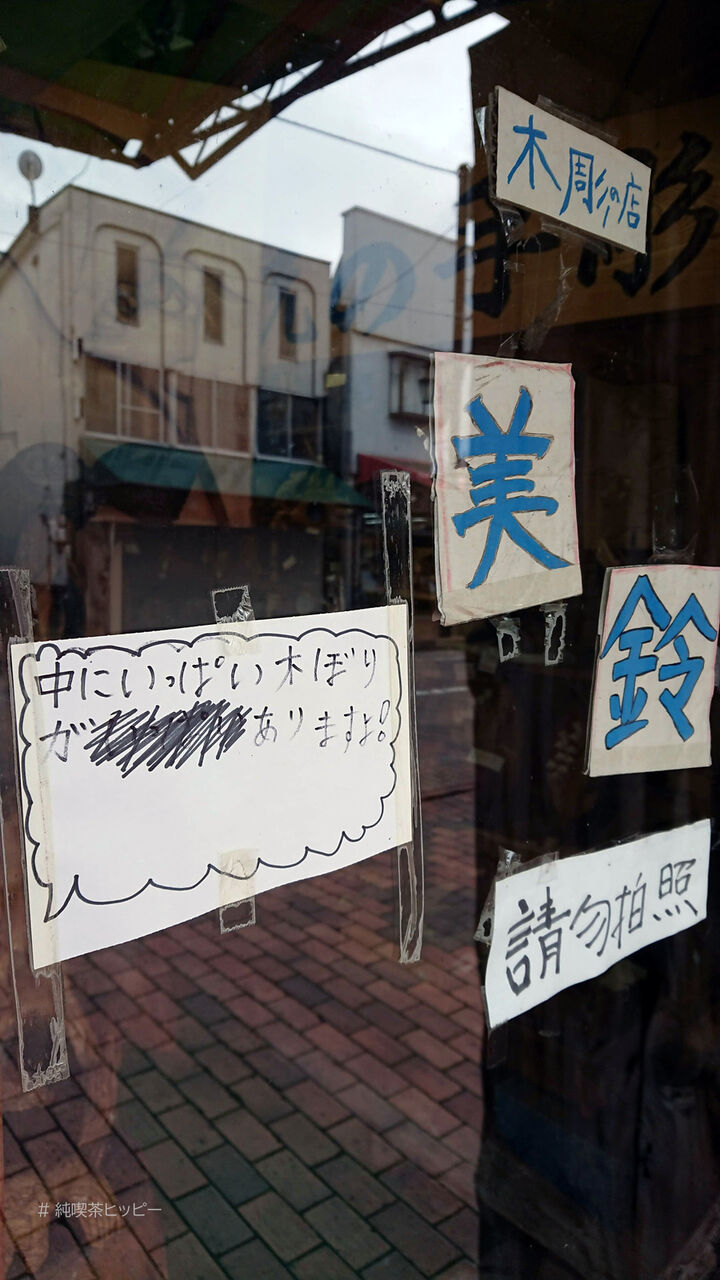 木彫の店
美
鈴
中にいっぱい木ぼり
がありますよ!
請勿拍照
の手彫
# 純喫茶ヒッピー